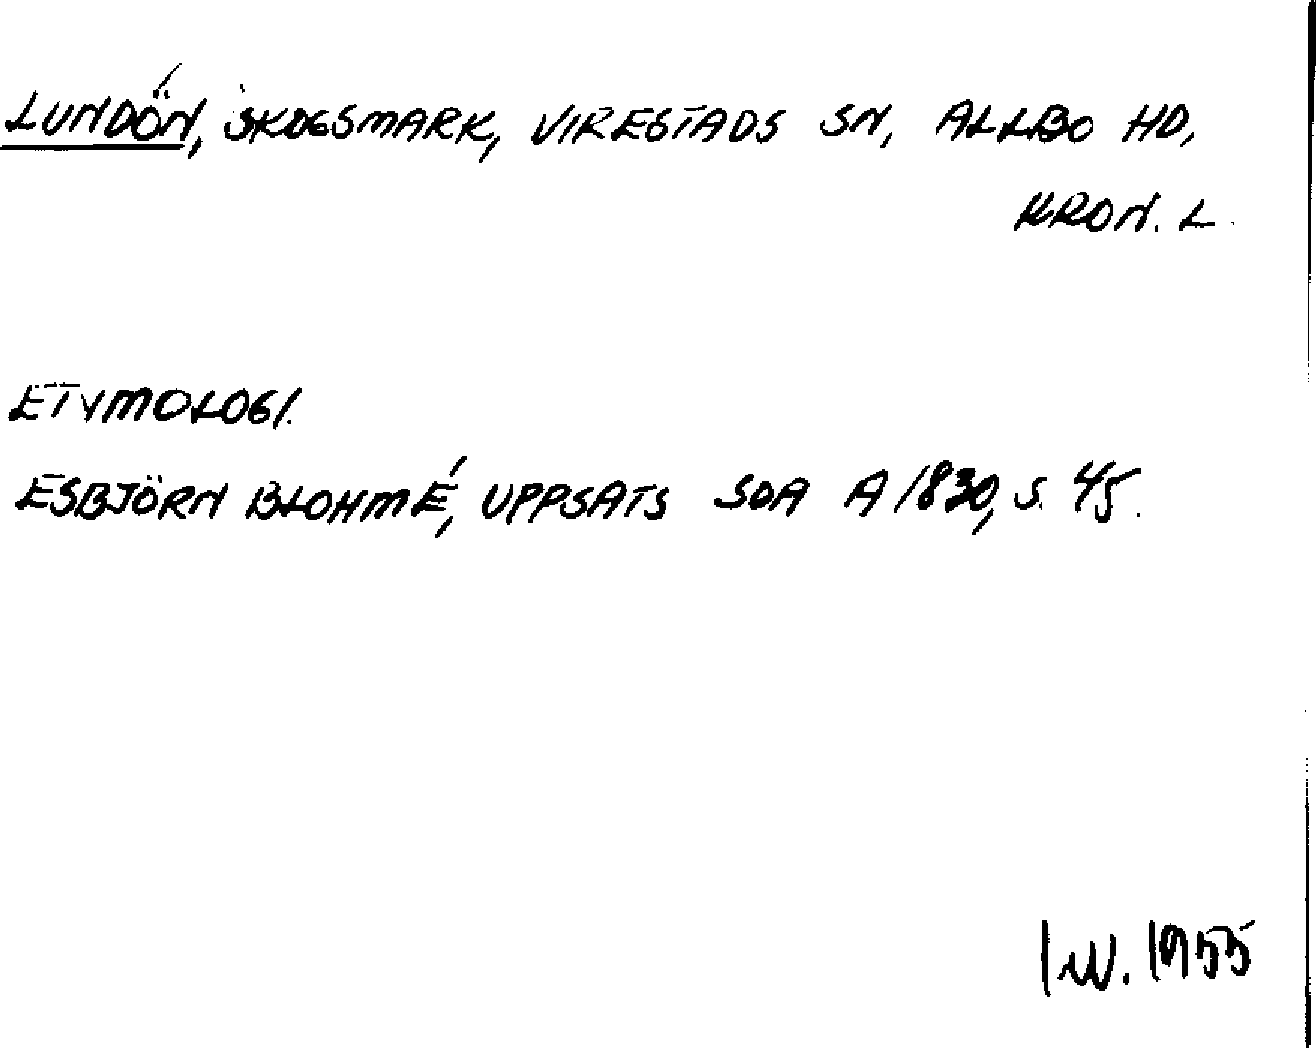 LUNDÖN, SKOGSMARK, VIRESTADS SN, ALLBO HD,
KRON. L.
ETYMOLOGI.
ESBJÖRN BLOHMÉ, UPPSATS SOA A 1830, S. 45.
1955